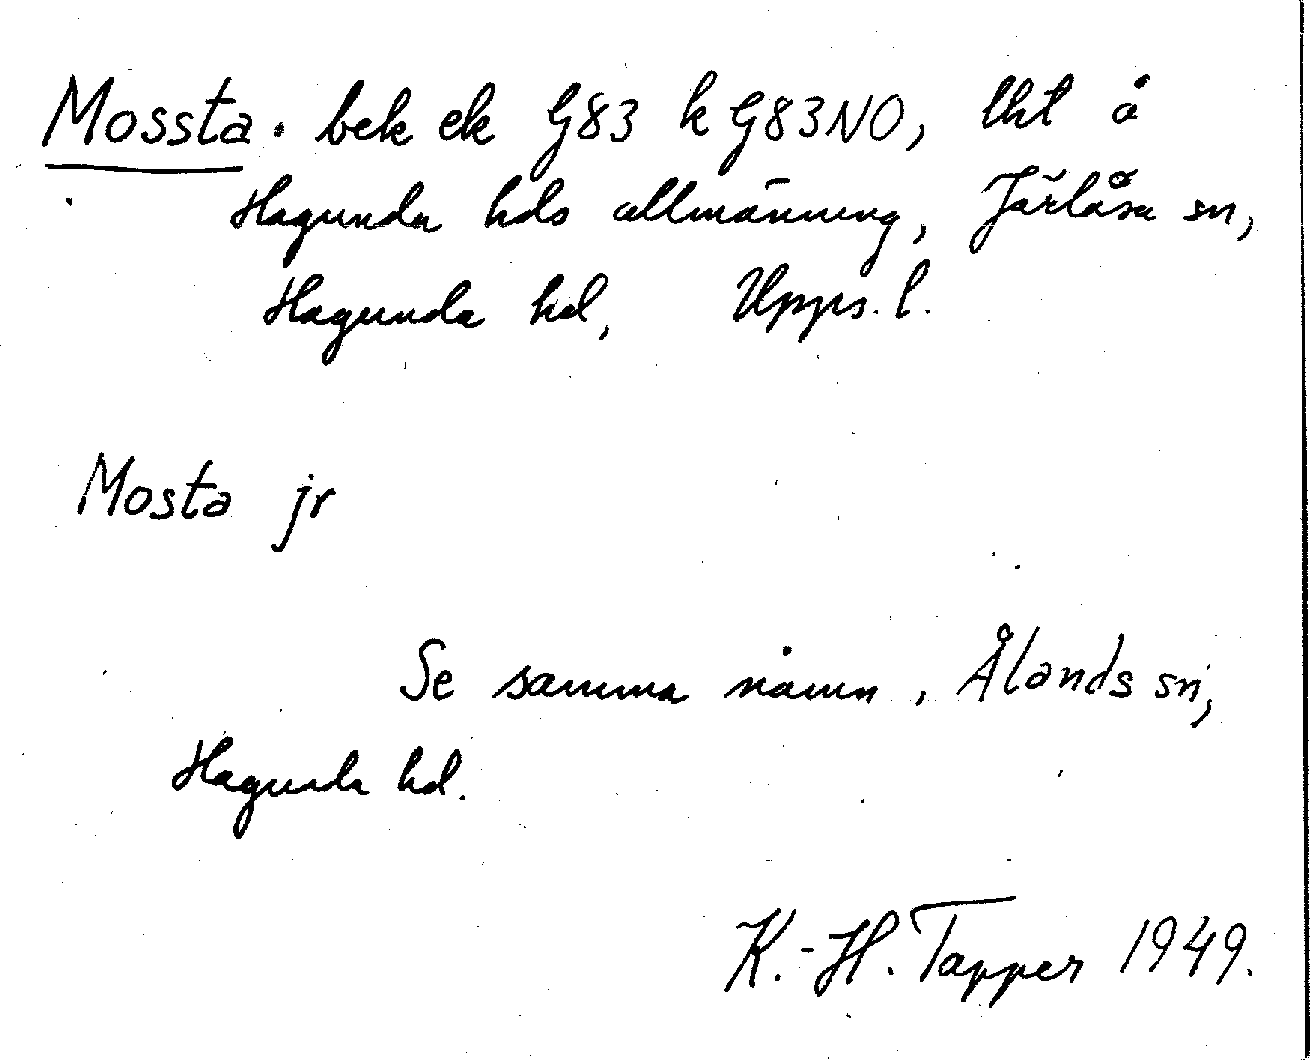 Mossta. bek ek G83 k G83NO, lht å
Hagunda hds allmänning, Järlåsa sn,
Hagunda hd, Upps. l.
Mosta jr
Se samma namn, Ålands sn,
Hagunda hd.
K.-H. Tapper 1949.